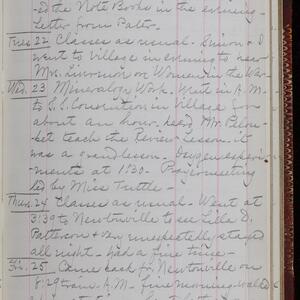 ed the Note Books in the evening-
Letter from Pater-
Tues. 22 Classes as usual. Simon & I
went to Village in evening to hear
Mrs. Livermore on Women in the War-
Wed. 23 Mineralogy Work. Went in A.M.
to S.S. Convention in Village for
about an hour, heard Mr. Pelou-
bet teach the Review Lesson - it
was a grand lesson. Oxygen experi-
ments at 1130 - Prayermeeting
led by Miss Tuttle -
Thurs. 24 Classes as usual - Went at
3:39 to Newtonville to see Lila D.
Patterson & very unexpectedly stayed
all night - had a fine time -
Fri. 25 Came back fr. Newtonville on
8:29 train A.M. fine morning, walked